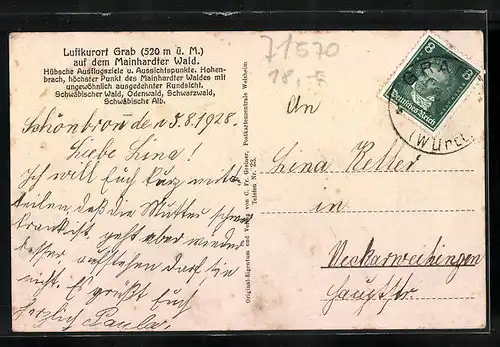 Luftkurort Grab (520 m ü. M.)
auf dem Mainhardter Wald.
Hübsche Ausflugsziele u. Aussichtspunkte. Hohen-
brach, höchster Punkt des Mainhardter Waldes mit
ungewöhnlich ausgedehnter Rundsicht.
Schwäbischer Wald, Odenwald, Schwarzwald,
Schwäbische Alb.
Schönbronn d. 5.8.1928.
Liebe Lina!
Ich will Euch kurz mit-
teilen daß die Mutter schwer
krank ist geht aber wieder
besser aufstehen darf sie
nicht. Es grüßt Euch
herzlich Paula.
Original-Eigentum und Verlag von C. Fr. Greiner, Postkartenzentrale Welzheim
Telefon Nr. 23.
71570
18,-
8 8
Deutsches Reich
GRAB
(WÜRTT.
An
Lina Keller
in
Neckarweihingen
Hauptstr.